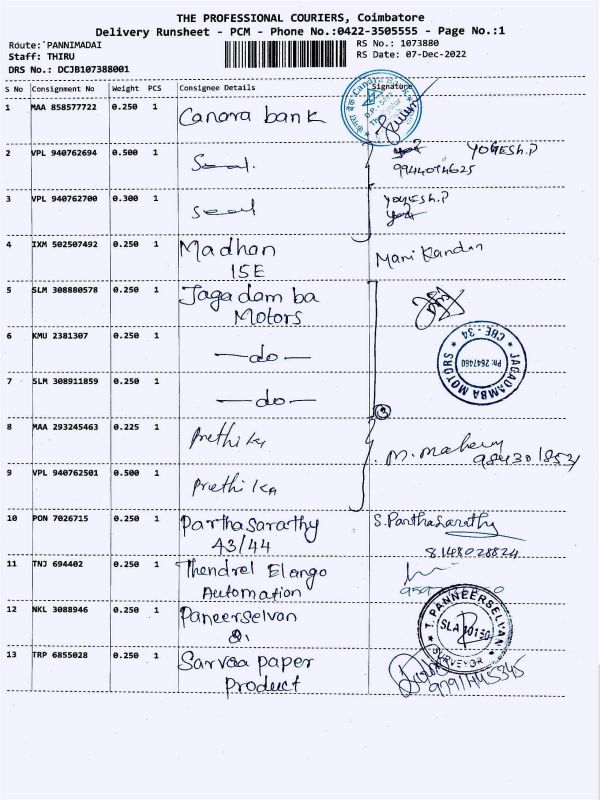 THE PROFESSIONAL COURIERS, Coimbatore
Delivery Runsheet - PCM - Phone No.:0422-3505555 - Page No.:1
Route: PANNIMADAI RS No.: 1073880
Staff: THIRU RS Date: 07-Dec-2022
DRS No.: DCJB107388001
S No Consignment No Weight PCS Consignee Details Signature
1 MAA 858577722 0.250 1 Canara bank
2 VPL 940762694 0.500 1 Seal. YOGESH.P
3 VPL 940762700 0.300 1 Seal YOGESH.P
4 IXM 502507492 0.250 1 Madhan Mani Kandan
ISE
5 SLM 308880578 0.250 1 Jagadamba
Motors
6 KMU 2381307 0.250 1 —do—
JAGADAMBA MOTORS
CBE - 34
Ph: 2647460
7 SLM 308911859 0.250 1 —do—
8 MAA 293245463 0.225 1 Prethika
9 VPL 940762501 0.500 1 Prethika
10 PON 7026715 0.250 1 Parthasarathy S.Parthasarathy
43/44 8148028824
11 TNJ 694402 0.250 1 Thendrel Elango
Automation
12 NKL 3088946 0.250 1 Paneerselvan
T. PANNEERSELVAN
SURVEYOR
13 TRP 6855028 0.250 1 Sarvaa paper
Product 9791445345